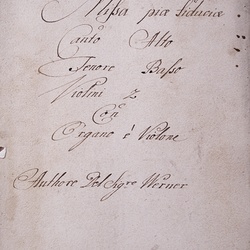 Missa piæ fiduciæ
Canto Alto
Tenore Basso
Violini 2
Con
Organo è Violone
Authore Del Sigre Werner